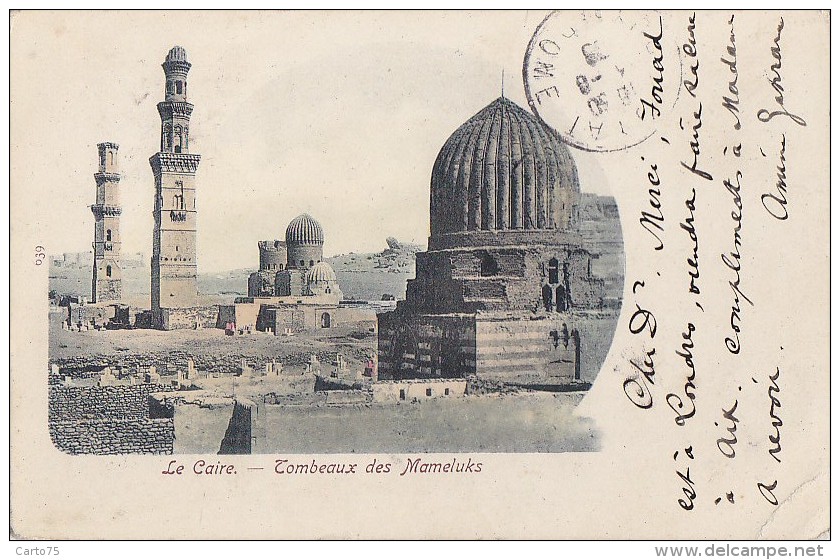 639
Le Caire. — Tombeaux des Mameluks
Cher Dr. Merci, Fouad
est à Londres, viendra faire sa cure
à Aix. Compliments à Madame
à revoir. Amin
OME
Carto75
www.delcampe.net